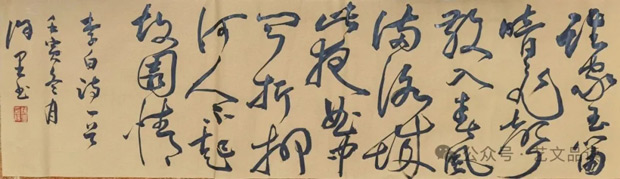 誰家玉笛
暗飛聲
散入春風
滿洛城
此夜曲中
聞折柳
何人不起
故園情
李白詩一首
壬寅冬月
公众号·艺文品